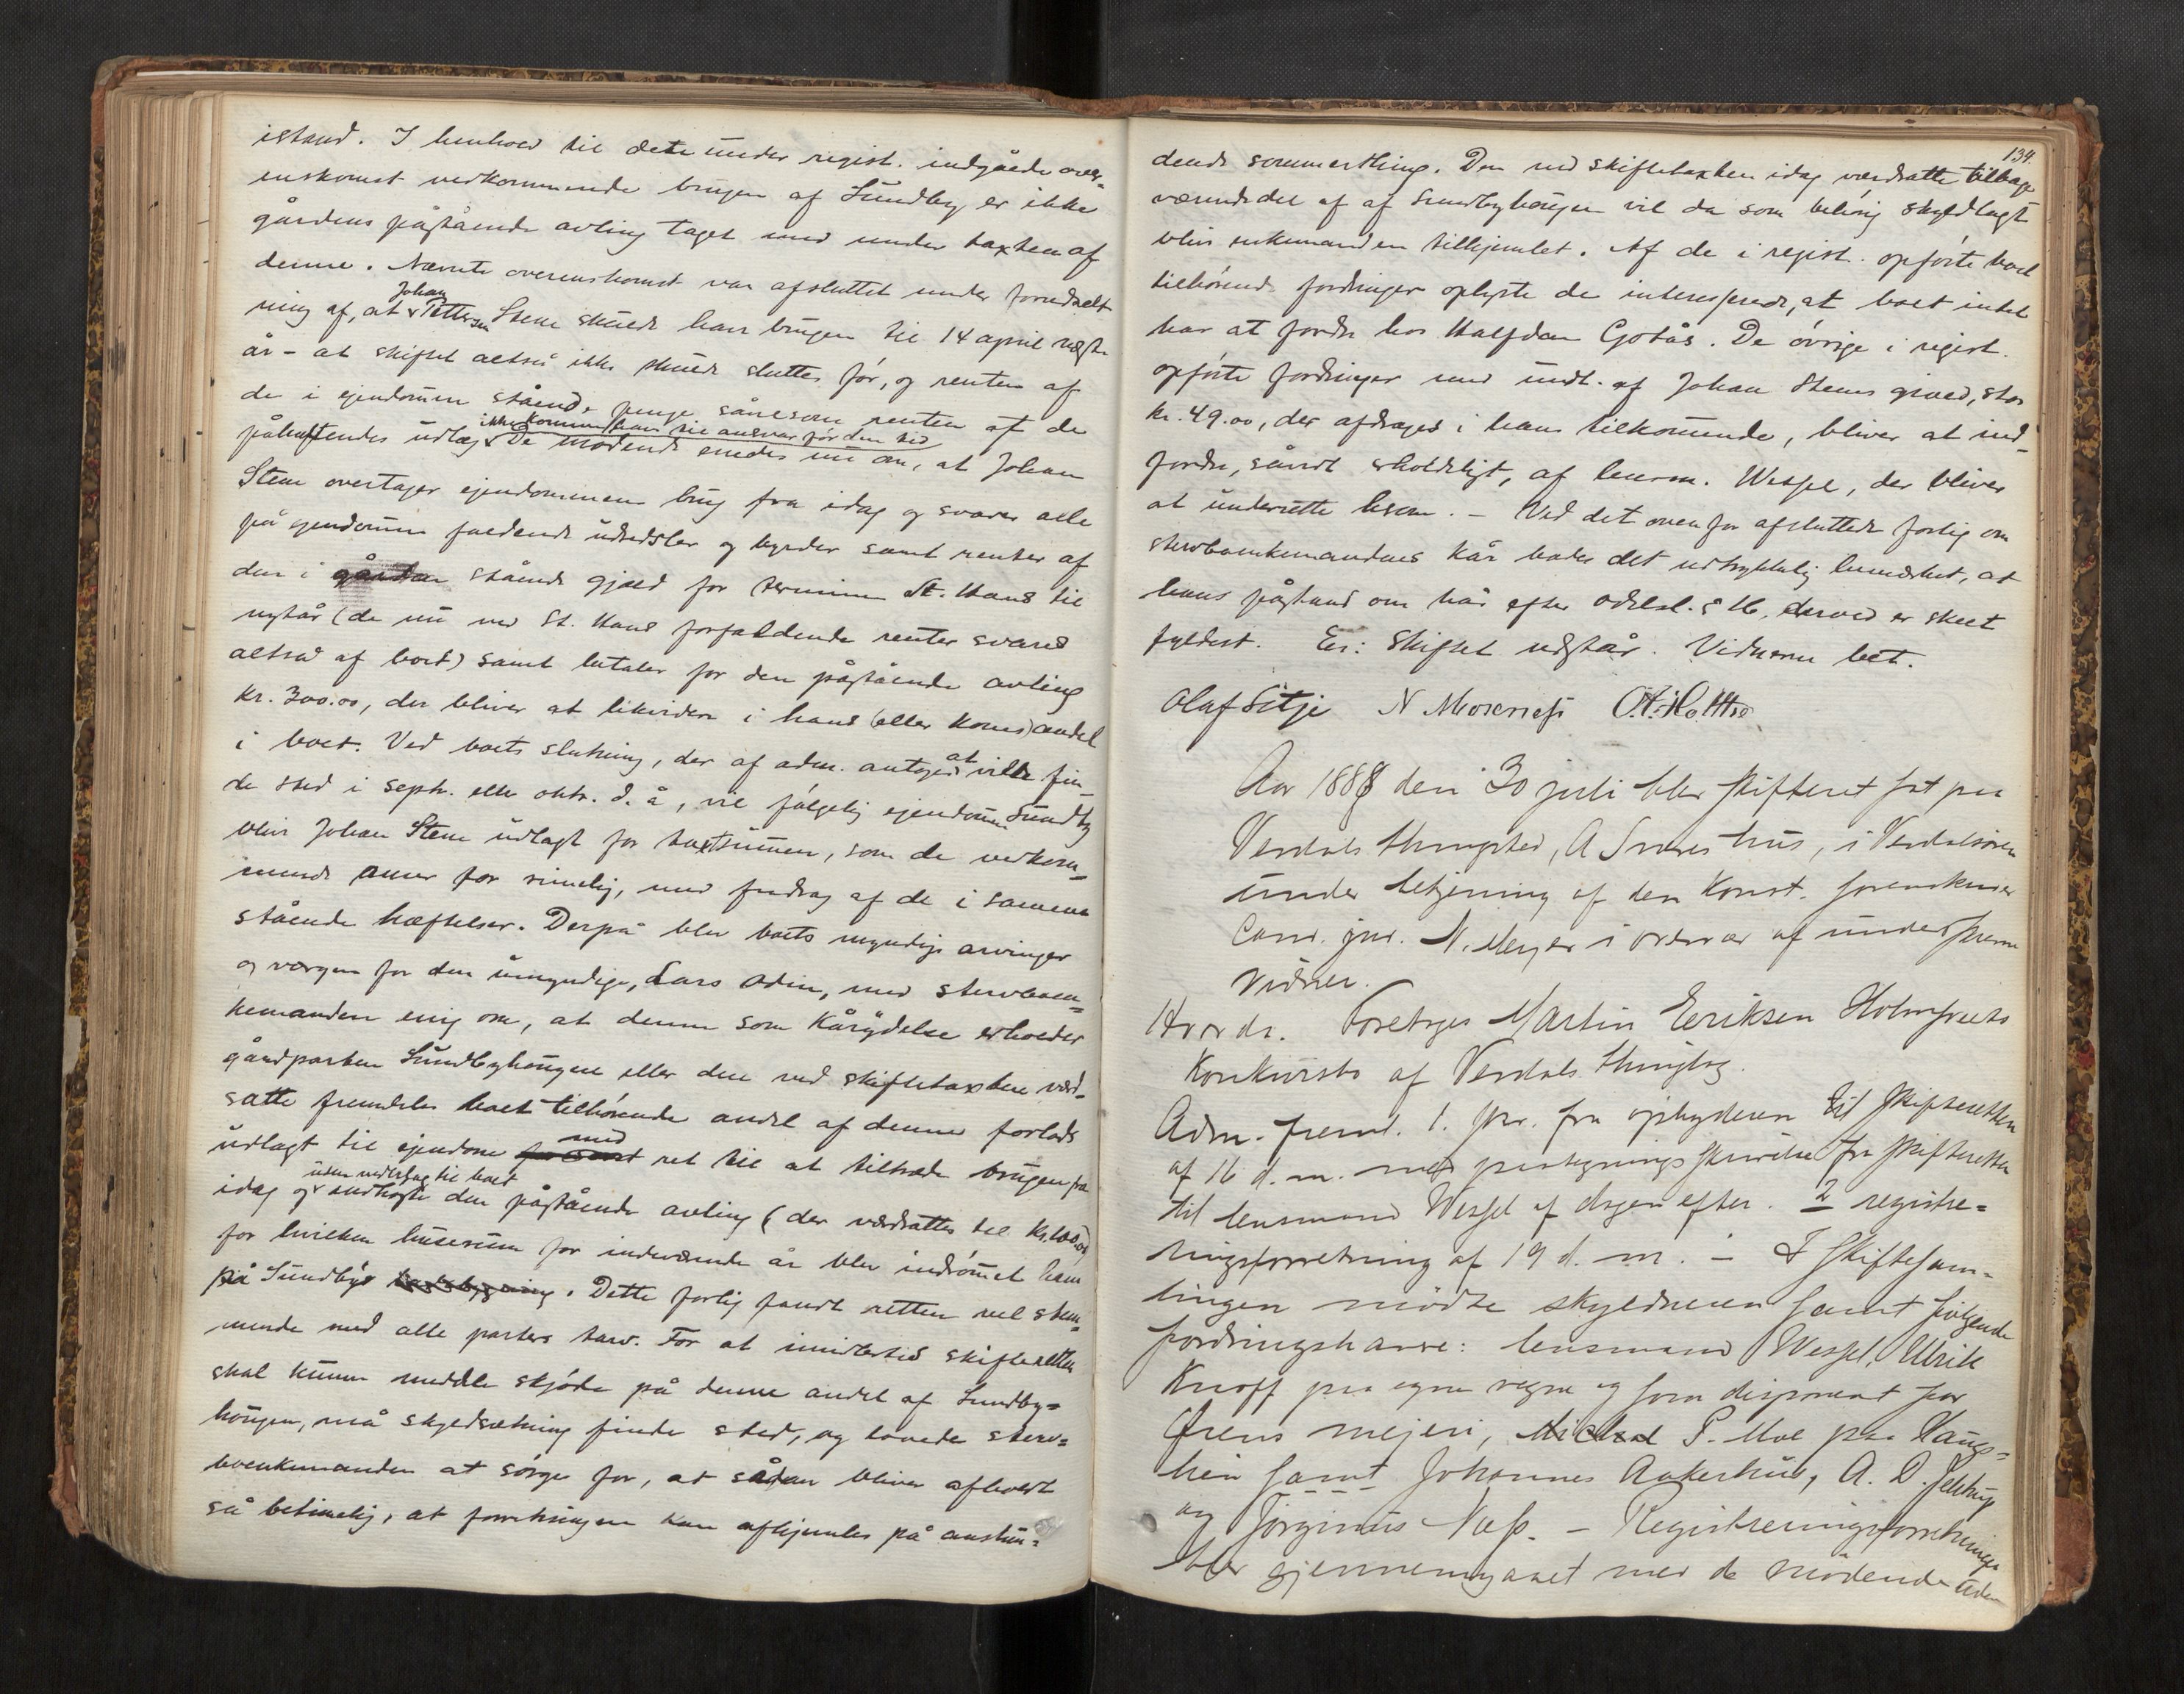 istand. I henhold til dette under regist. indgåede over-
enskomst vedkommende brugen af Sundby er ikke
gårdens påstående avling taget med under taxten af
denne. Nævnte overenskomst var afsluttet under forudsæt-
ning af, at Johan Petterson Stene skulde have brugen til 14 april næste
år - at skiftet altså ikke skulde sluttes før, og renten af
de i ejendommen stående penge såvelsom renten af de
påheftendes udlæg ikke komme hans til ansvar før den tid
De mødende enedes nu om, at Johan
Stene overtager ejendommens brug fra idag og svarer alle
på ejendommen faldende udredsler og byrder samt renter af
den i gården stående gjæld for terminen St. Hans til
nytår (de nu ved St. Hans forfaldende renter svares
altså af boet) samt betaler for den påstående avling
kr. 300.00, der bliver at likvidere i hans (eller kones) andel
i boet. Ved boets slutning, der af adm. antoges at ville fin-
de sted i septr. eller oktr. d. å, vil følgelig ejendommen Sundby
blive Johan Stene udlagt for taxtsummen, som de vedkom-
mende anser for rimelig, med fradrag af de i samme
stående hæftelser. Derpå blev boets myndige arvinger
og værgen for den umyndige, Lars Odin, med stervboen-
kemanden enig om, at denne som kårydelse erholder
gårdparten Sundbyhougen eller den ved skiftetaxten værd-
satte fremdeles boet tilhørende andel af denne forlods
udlagt til ejendom med ret til at tiltræde brugen fra
idag og uden vederlag til boet indhøste den påstående avling (der værdsattes til kr. 100.00)
for hvilken husrum for indeværende år blev indrømmet ham
på Sundby. Dette forlig fandt retten vel stem-
mende med alle parters tarv. For at imidlertid skifteretten
skal kunne meddele skjøde på denne andel af Sundby-
hougen, må skyldsætning finde sted, og lovede sterv-
boenkemanden at sørge for, at sådan bliver afholdt
så betimelig, at forretningen kan afhjemles på anstun-
134.
dende sommerthing. Den ved skiftetaxten idag værdsatte tilbage
værende del af af Sundbyhougen vil da som behørig skyldlagt
blive enkemanden tilhjemlet. Af de i regist. opførte boet
tilhørende fordringer oplyste de interesserede, at boet intet
har at fordre hos Halfdan Gotås. De øvrige i regist.
opførte fordringer med undt. af Johan Stenes gjæld, stor
kr. 49.00, der afdrages i hans tilkommende, bliver at ind-
fordre, såvidt erholdeligt, af lensm. Wessel, der bliver
at underrette herom. - Ved det ovenfor afsluttede forlig om
stervboenkemandens kår bades det udtrykkelig bemærket, at
hans påstand om kår efter odelsl. § 16, derved er skeet
fyldest. Er: Skiftet udstår. Vidnerne bet.
Olaf Sitje N Moseness O.A. Holthe
Aar 1888 den 30 juli blev skifteret sat paa
Verdals thingsted, A Snares hus, i Verdalsøren
under betjening af den konst. sorenskriver
Cand. jur. N. Meyer i overvær af underskrevne
vidner.
Hvorda. Foretoges Martin Eriksen Holmsveets
Konkursbo af Verdals thinglag.
Adm. freml. 1. Skr. fra opbyderen til skifteretten
af 16 d. m. med paategningsskrivelse fra skifteretten
til lensmand Wessel af dagen efter. 2 registre-
ringsforretning af 19 d. m. - I skiftesam-
lingen mødte skyldneren samt følgende
fordringshavere: lensmand Wessel, Ulrik
Knoff paa egne vegne og som disponent for
Ørens mejeri, P. Moe paa Haugs-
hei samt Johannes Aakerhus, A. D. Jelstrup
og Jørginus Næss. - Registreringsforretningen
blev gjennemgaaet med de mødende uden